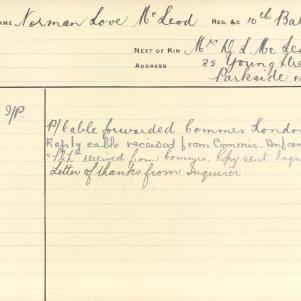 NAME Norman Love McLeod REG. &C 10th Bat
NEXT OF KIN Mrs D. L. McLeo
ADDRESS 25 Young Stre
Parkside
I/P.
P/ Cable forwarded Commrs London
Reply cable received from Commrs. Infor
received from Commrs. Copy sent Inqui
Letter of thanks from Inquirer